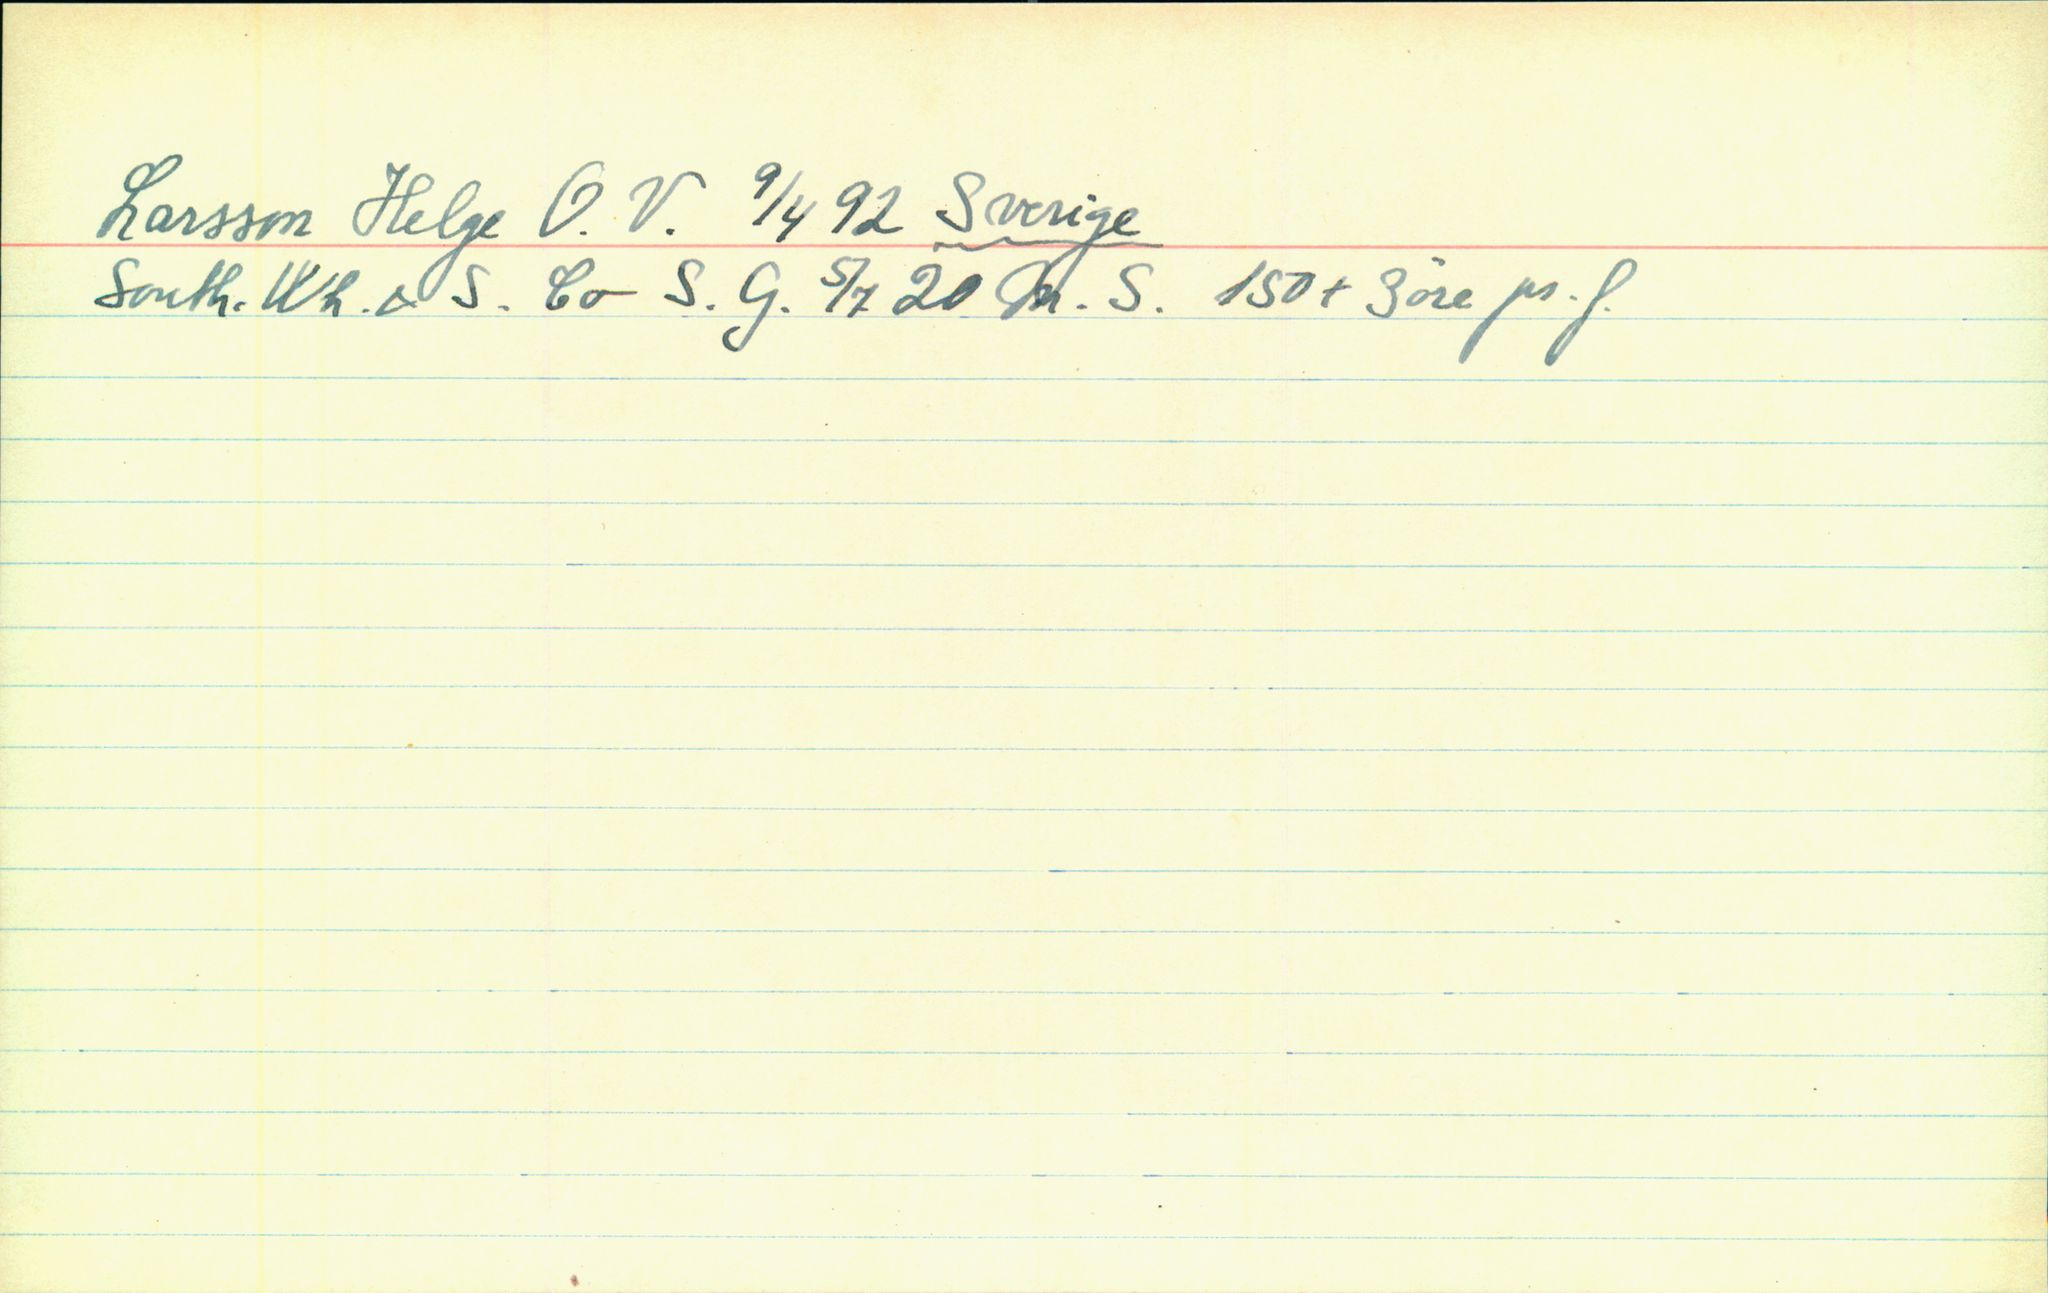 Larsson Helge O. V. 9/4 92 Sverige
South. Wh. & S. Co S. G. 5/7 20 M. S. 150 + 3 öre pr. f.